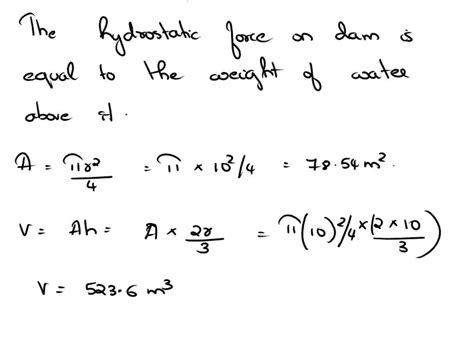 The hydrostatic force on dam is
equal to the weight of water
above it.
A = πr²/4 = π × 10²/4 = 78.54 m².
V = Ah = A × 2r/3 = π(10)²/4 × (2 × 10/3)
V = 523.6 m³